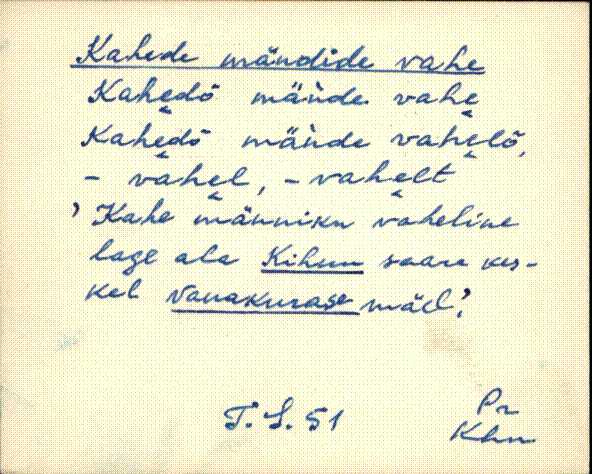 Kahede mändide vahe
Kahedõ mäńde vahe̬
Kahedõ mäńde vahe̬lõ,
- vahe̬l, - vahe̬lt
’Kahe männiku vaheline
lage ala Kihnu saare kes-
kel Vanakurase mäel.’
T. S. 51
Pr
Khn